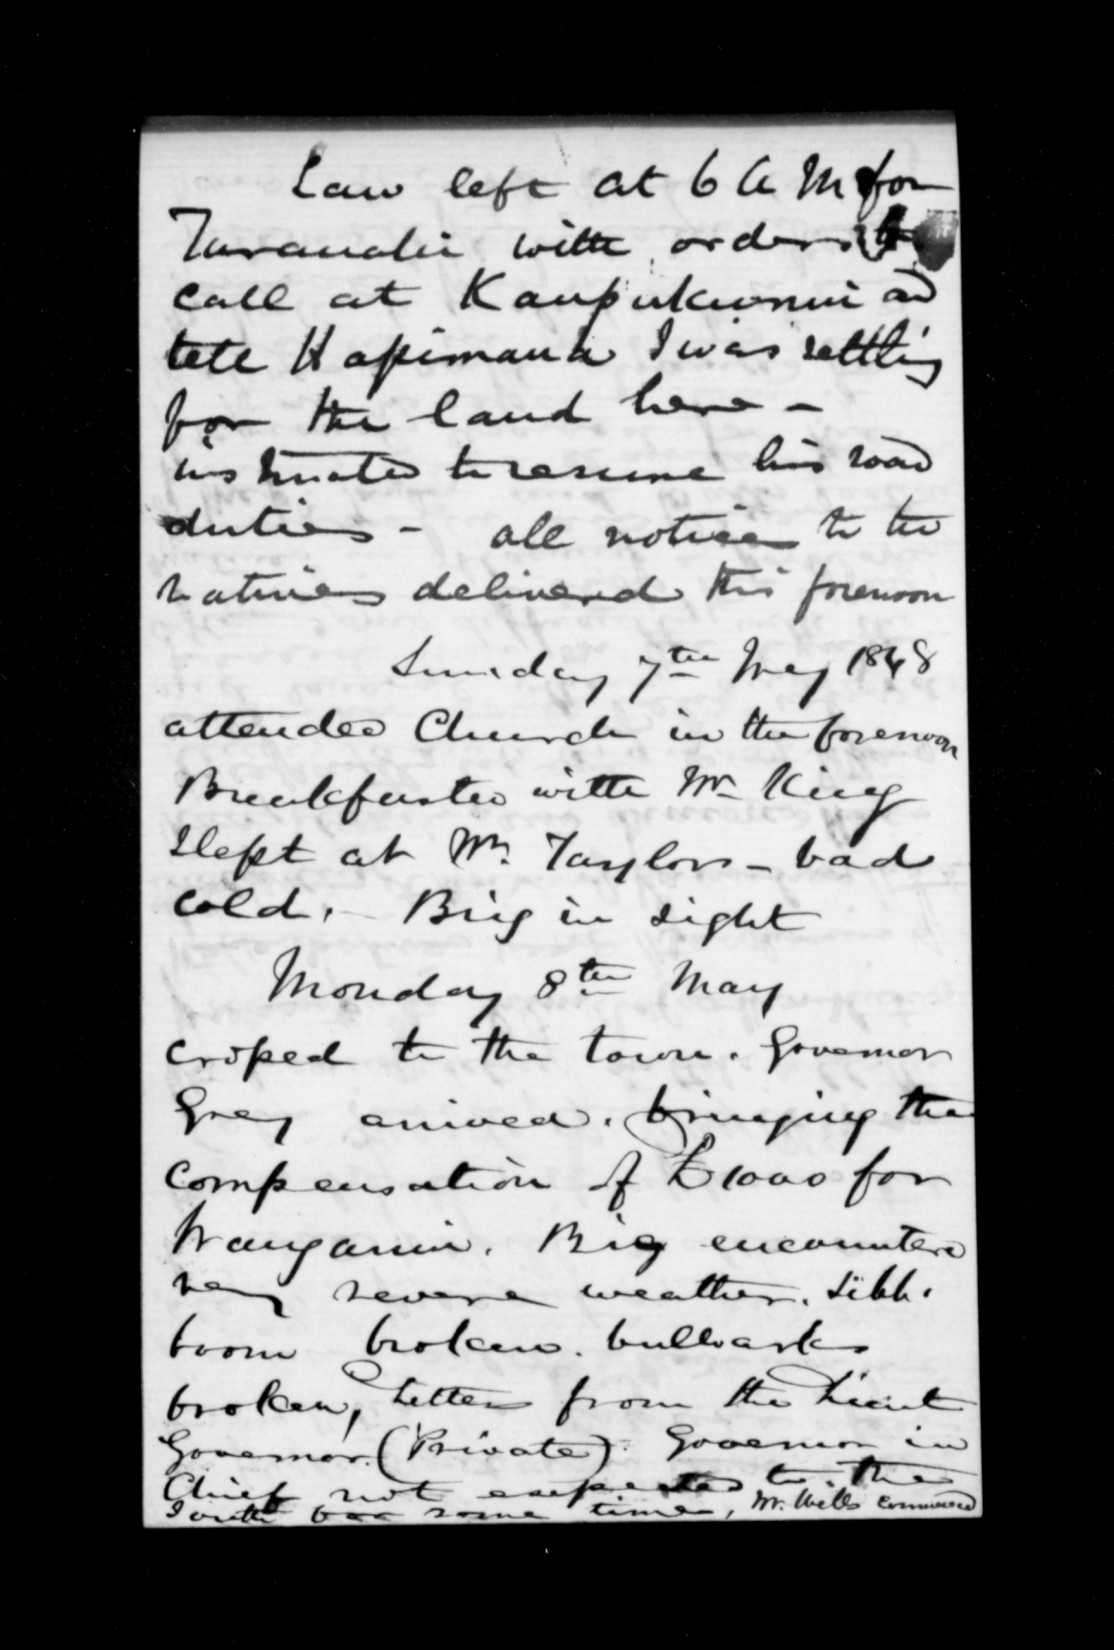 Law left at 6 A M for
Taranaki with orders to
call at Kaupukunui and
tell Hapimana I was settling
for the land here -
instructed to resume his road
duties - all notices to the
natives delivered this forenoon
Sunday 7th May 1848
attended Church in the forenoon
Breakfasted with Mr King
Slept at Mr Taylors - bad
cold. - Brig in sight
Monday 8th May
crossed to the town. Governor
Grey arrived. bringing the
compensation of £1000 for
Wanganui. Brig encountered
very severe weather. Jibb.
boom broken. bullwarks
broken, Letters from the Lieut
Governor. (Private). Governor in
Chief not expected to the
South for some time, Mr. Wills commenced